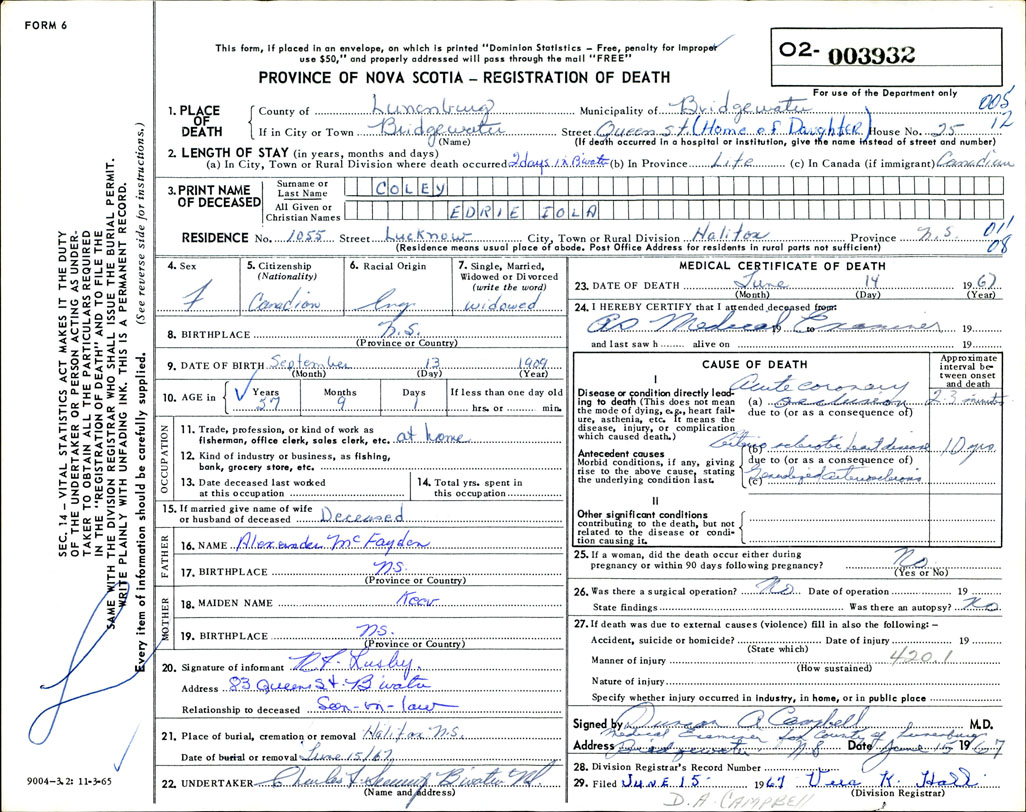 FORM 6
This form, if placed in an envelope, on which is printed "Dominion Statistics – Free, penalty for improper
use $50," and properly addressed will pass through the mail "FREE"
PROVINCE OF NOVA SCOTIA – REGISTRATION OF DEATH
O2- 003932
For use of the Department only
005
12
1. PLACE OF DEATH
County of Lunenburg Municipality of Bridgewater
If in City or Town Bridgewater Street Queen St. (Home of Daughter) House No. 25
(Name) (If death occurred in a hospital or institution, give the name instead of street and number)
2. LENGTH OF STAY (in years, months and days)
(a) In City, Town or Rural Division where death occurred 2 days in B'water (b) In Province Life (c) In Canada (if immigrant) Canadian
3. PRINT NAME OF DECEASED
Surname or Last Name COLEY
All Given or Christian Names EDRIE IOLA
RESIDENCE No. 1055 Street Lucknow City, Town or Rural Division Halifax Province N.S.
(Residence means usual place of abode. Post Office Address for residents in rural parts not sufficient)
011
08
4. Sex F
5. Citizenship (Nationality) Canadian
6. Racial Origin Eng.
7. Single, Married, Widowed or Divorced (write the word) widowed
8. BIRTHPLACE N.S.
(Province or Country)
9. DATE OF BIRTH September 13 1909
(Month) (Day) (Year)
10. AGE in Years 57 Months 9 Days 1 If less than one day old
hrs. or min.
OCCUPATION
11. Trade, profession or kind of work as
fisherman, office clerk, sales clerk, etc. at home
12. Kind of industry or business, as fishing,
bank, grocery store, etc.
13. Date deceased last worked
at this occupation
14. Total yrs. spent in
this occupation
15. If married give name of wife
or husband of deceased Deceased
FATHER
16. NAME Alexander McFayden
17. BIRTHPLACE N.S.
(Province or Country)
MOTHER
18. MAIDEN NAME
19. BIRTHPLACE N.S.
(Province or Country)
20. Signature of informant R F Lusby
Address 83 Queen St. B'water
Relationship to deceased Soon-on-law
21. Place of burial, cremation or removal Halifax N.S.
Date of burial or removal June 15/67
22. UNDERTAKER Charles B'water N.S.
(Name and address)
MEDICAL CERTIFICATE OF DEATH
23. DATE OF DEATH June 14 1967
(Month) (Day) (Year)
24. I HEREBY CERTIFY that I attended deceased from:
As Medical 19 to Examiner 19
and last saw h alive on 19
CAUSE OF DEATH
Approximate interval between onset and death
I
Disease or condition directly leading to death (This does not mean
the mode of dying, e.g., heart failure, asthenia, etc. It means the
disease, injury, or complication
which caused death.)
(a) Acute coronary occlusion 2-3 minutes
due to (or as a consequence of)
Antecedent causes
Morbid conditions, if any, giving
rise to the above cause, stating
the underlying condition last.
(b) Arteriosclerotic heart disease 10 yrs.
due to (or as a consequence of)
(c) Generalized arteriosclerosis
II
Other significant conditions
contributing to the death, but not
related to the disease or condition causing it.
25. If a woman, did the death occur either during
pregnancy or within 90 days following pregnancy? No
(Yes or No)
26. Was there a surgical operation? No Date of operation 19
State findings Was there an autopsy? No
27. If death was due to external causes (violence) fill in also the following: –
Accident, suicide or homicide? Date of injury 19
(State which)
Manner of injury 420.1
(How sustained)
Nature of injury
Specify whether injury occurred in industry, in home, or in public place
Signed by Duncan A Campbell M.D.
Medical Examiner for County of Lunenburg
Address Bridgewater NS Date June 15 1967
28. Division Registrar's Record Number
29. Filed JUNE 15 1967 Vera K. Hall
(Division Registrar)
D. A. CAMPBELL
SEC. 14 – VITAL STATISTICS ACT MAKES IT THE DUTY
OF THE UNDERTAKER OR PERSON ACTING AS UNDER-
TAKER TO OBTAIN ALL THE PARTICULARS REQUIRED
IN THE "REGISTRATION OF DEATH" AND TO FILE THE
SAME WITH THE DIVISION REGISTRAR WHO SHALL ISSUE THE BURIAL PERMIT.
WRITE PLAINLY WITH UNFADING INK. THIS IS A PERMANENT RECORD.
Every item of information should be carefully supplied. (See reverse side for instructions.)
9004-3.2: 11-3-65